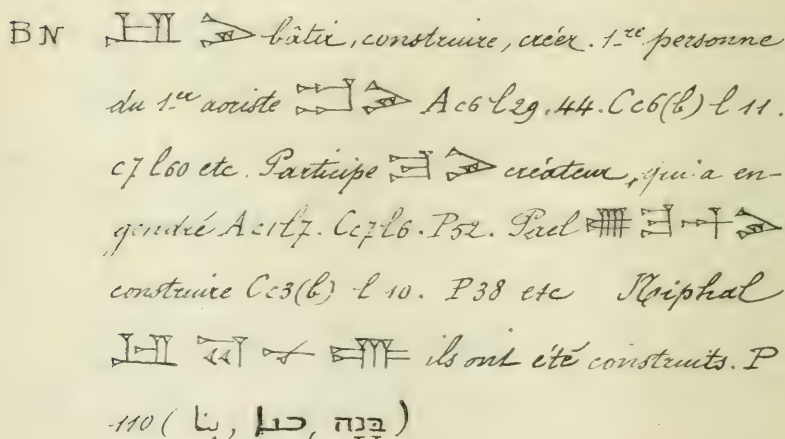 BN bâtir, construire, créer. 1-re personne
du 1-er aoriste A c6 l 29. 44. C c6(b) l 11.
c7 l 60 etc. Participe créateur, qui a en-
gendré A c1 l 7. C c7 l 6. P 52. Pael
construire C c3(b) l 10. P 38 etc Niphal
ils ont été construits. P
110 ( بنا, ܒܢܐ, בנה )